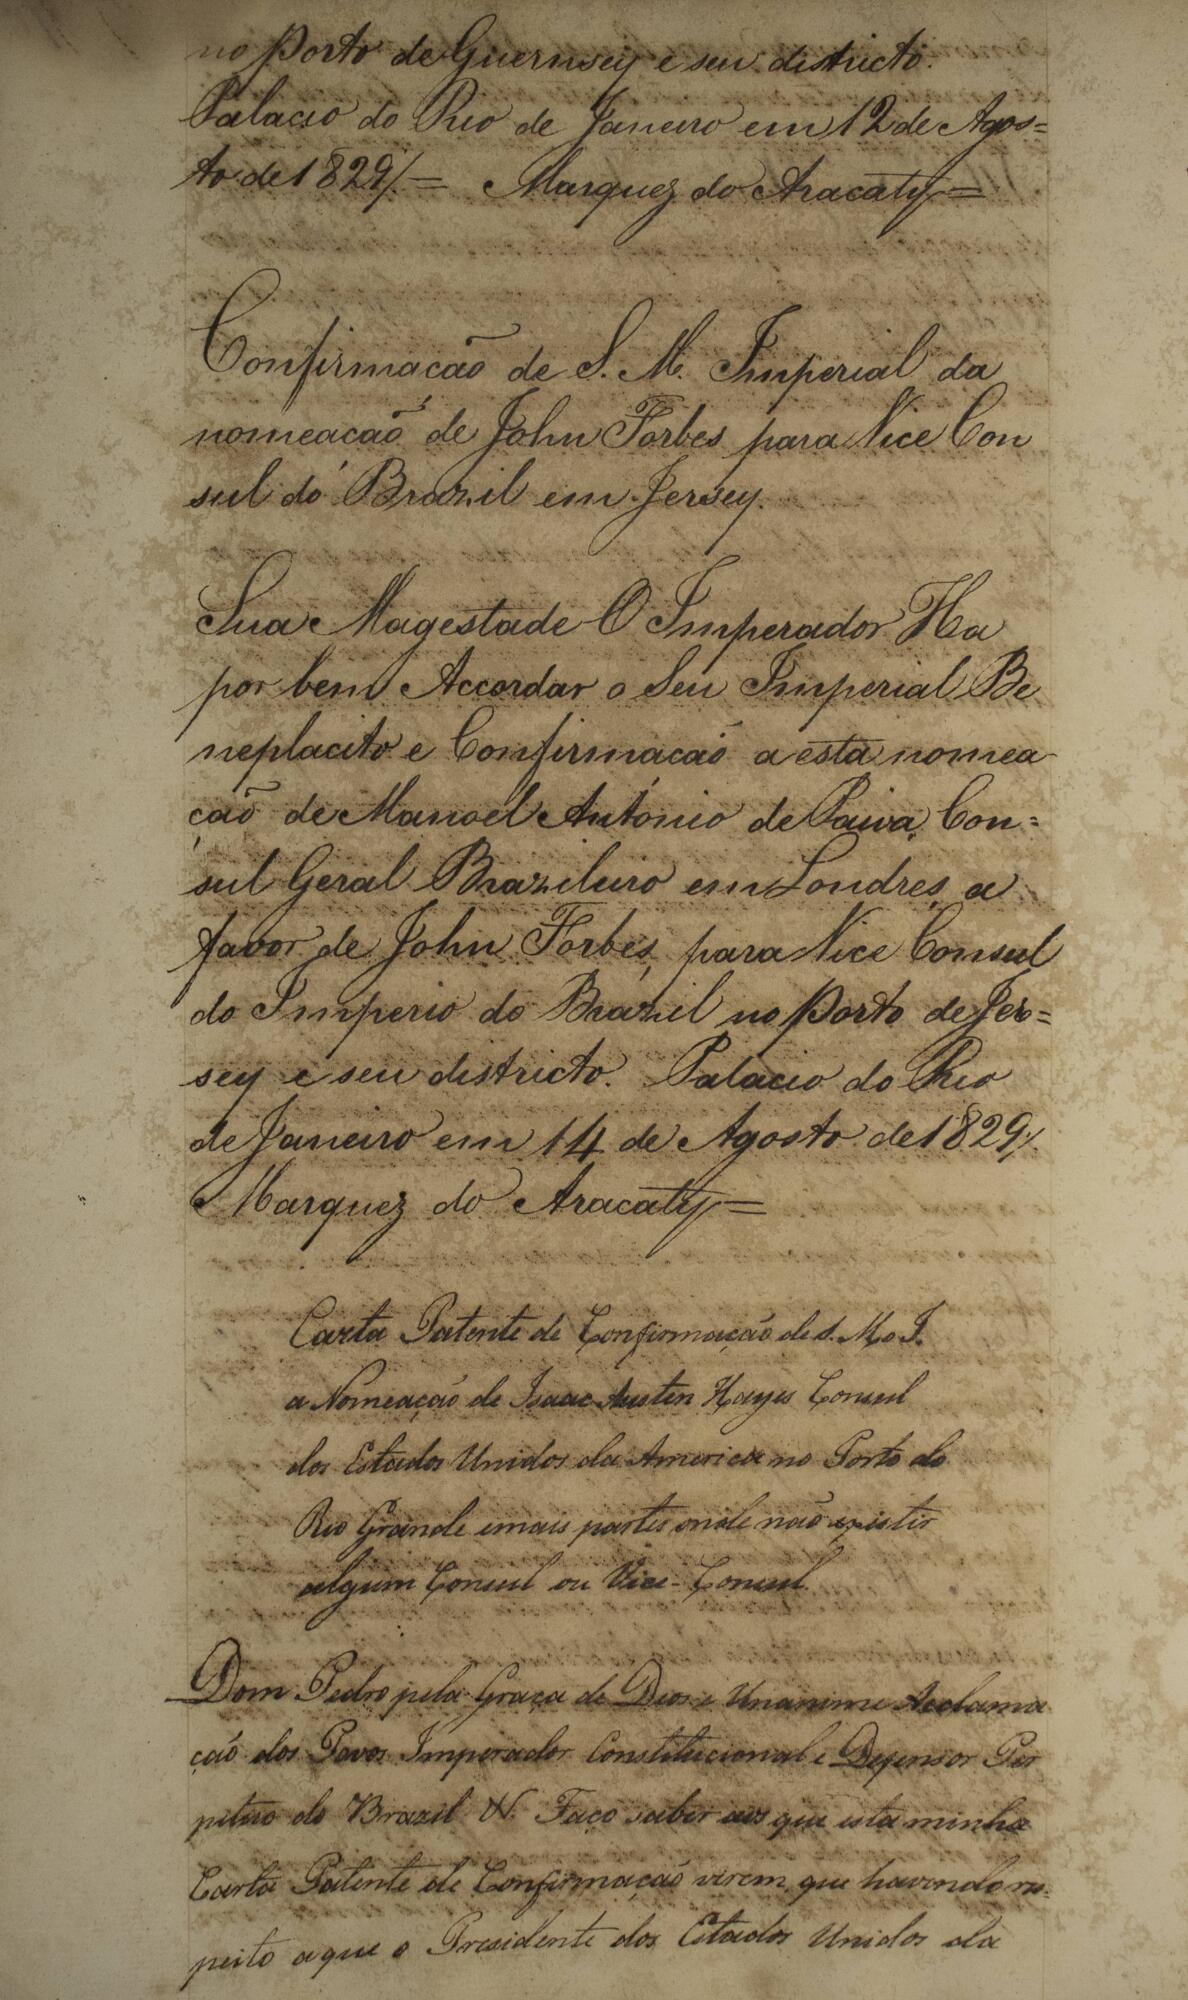 no Porto de Guernsey e seu districto.
Palacio do Rio de Janeiro em 12 de Agos=
to de 1829/.= Marquez do Aracaty=
Confirmação de S. M. Imperial da
nomeação de John Forbes para Vice Con
sul do Brazil em Jersey.
Sua Magestade O Imperador Ha
por bem Accordar o Seu Imperial Be
neplacito e Confirmacaõ a esta nomea
ção de Manoel António de Paiva Con=
sul Geral Brazileiro em Londres a
favor de John Forbes, para Vice Consul
do Imperio do Brazil no Porto de Jer=
sey e seu districto. Palacio do Rio
de Janeiro em 14 de Agosto de 1829/.
Marquez do Aracaty=
Carta Patente de Confirmação de S. M. o I.
a Nomeação de Isaac Austen Hayes Consul
dos Estados Unidos da America no Porto do
Rio Grande e mais partes onde não existir
algum Consul ou Vice-Consul.
Dom Pedro pela Graça de Deos e Unanime Acclama
ção dos Povos Imperador Constitucional e Defensor Per
petuo do Brazil &. Faço saber aos que esta minha
Carta Patente de Confirmação virem, que havendo res-
peito a que o Presidente dos Estados Unidos da